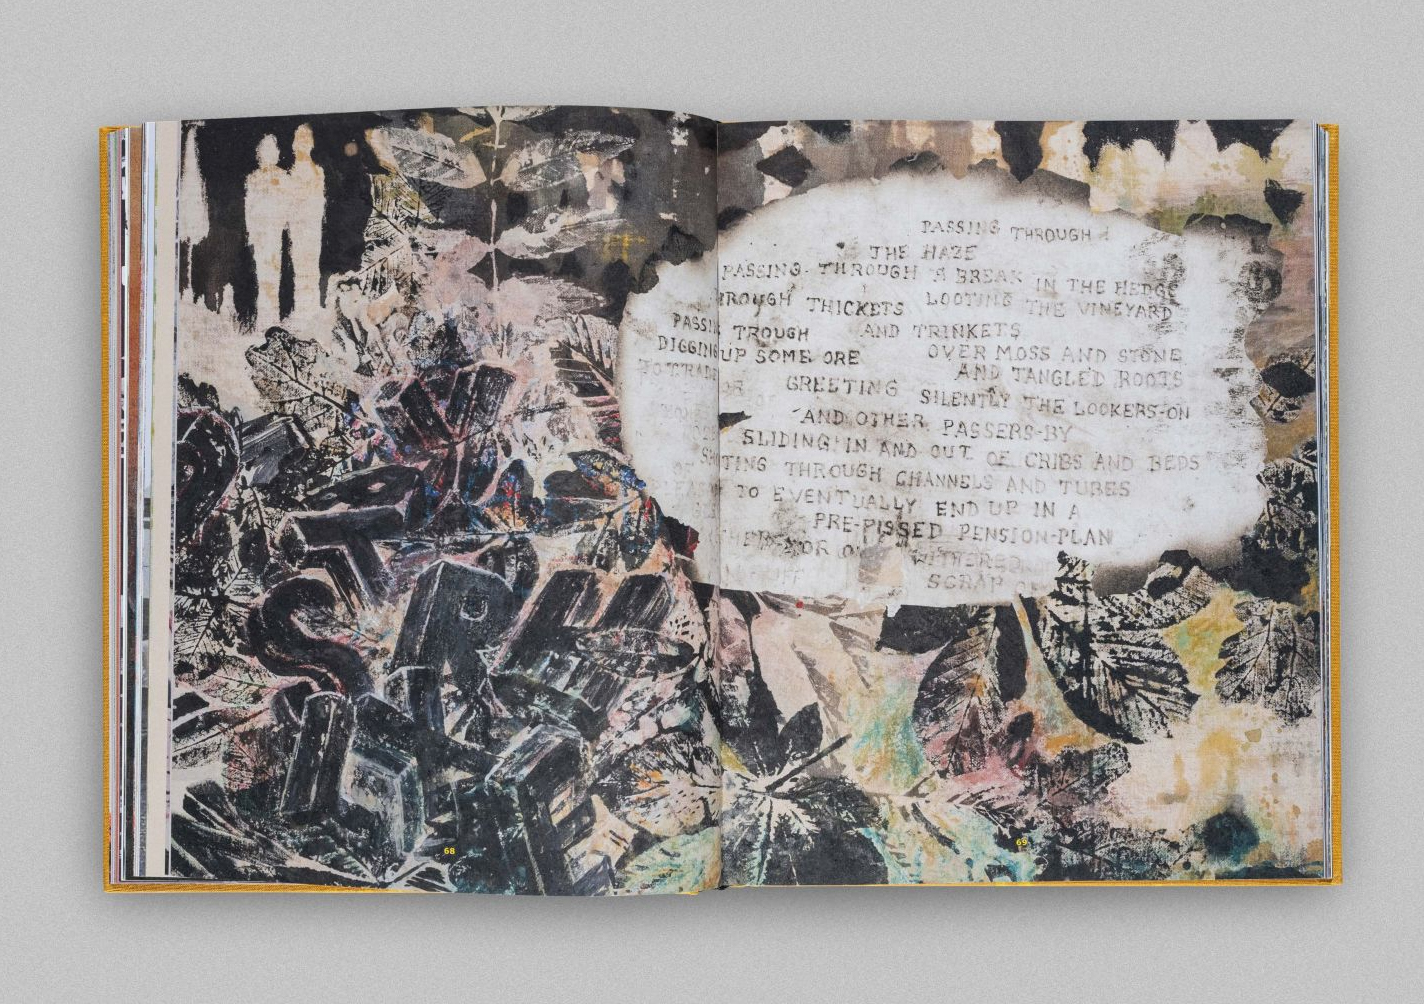 PASSING THROUGH
THE HAZE
PASSING THROUGH A BREAK IN THE HEDGE
THROUGH THICKETS LOOTING THE VINEYARD
PASSING TROUGH AND TRINKETS
DIGGING UP SOME ORE OVER MOSS AND STONE
TO TRADE AND TANGLED ROOTS
OR GREETING SILENTLY THE LOOKERS-ON
AND OTHER PASSERS-BY
SLIDING IN AND OUT OF CRIBS AND BEDS
THROUGH CHANNELS AND TUBES
TO EVENTUALLY END UP IN A
PRE-PISSED PENSION-PLAN
OR WITHERED
SCRAP
68
69